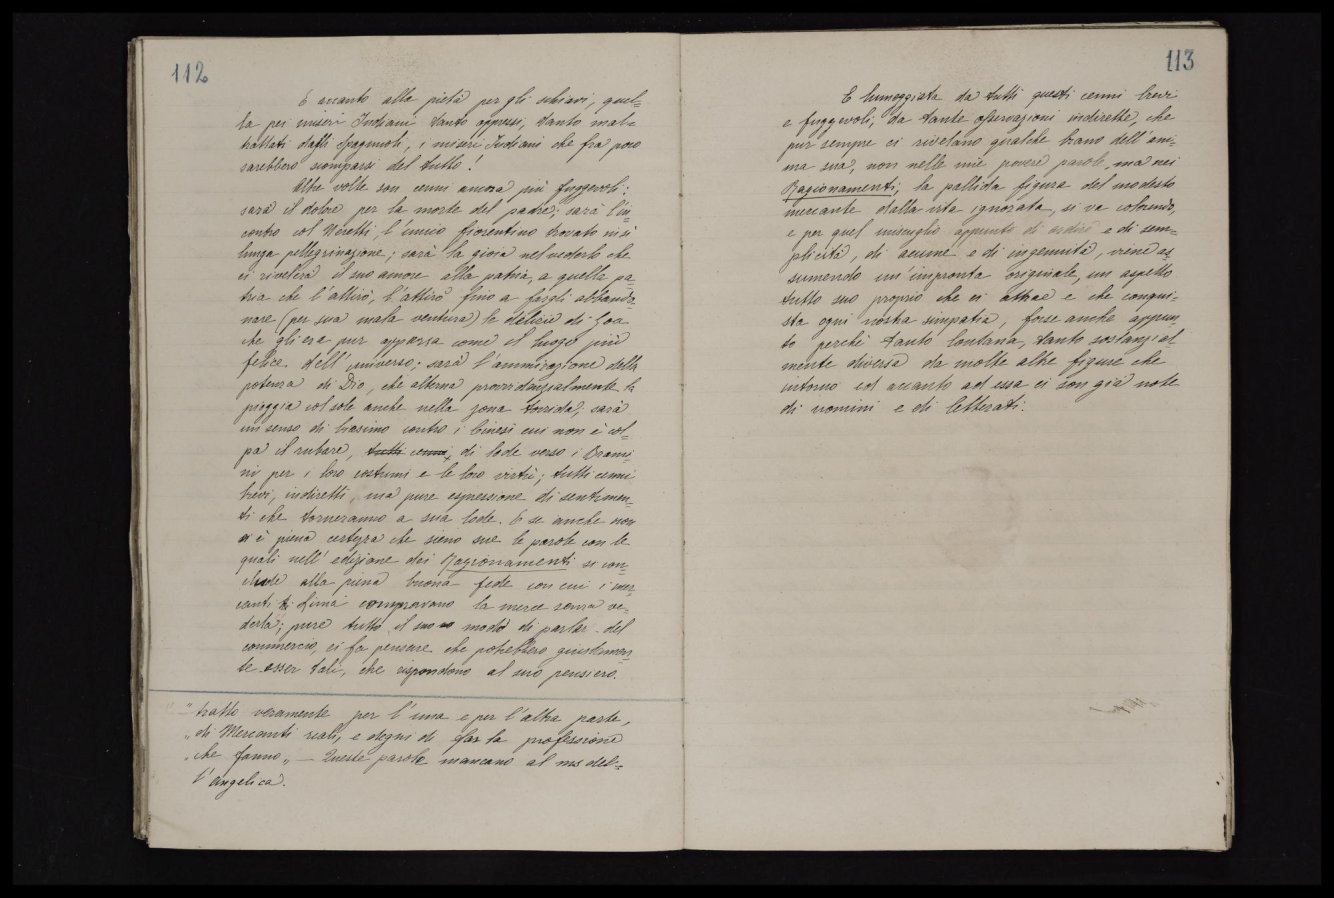 112
E accanto alla pietà per gli schiavi, quel=
la pei miseri Indiani tanto oppressi, tanto mal=
trattati dagli Spagnuoli, i miseri Indiani che fra poco
sarebbero scomparsi del tutto!
Altre volte son cenni ancora più fuggevoli:
sarà il dolore per la morte del padre; sarà l'in=
contro col Neretti l'unico fiorentino trovato in sì
lunga pellegrinazione; sarà la gioia nel vederlo che
ci rivelerà il suo amore alla patria, a quella pa=
tria che l'attirò, l'attirò fino a fargli abbando=
nare (per sua mala ventura) le delizie di Goa
che gli era pur apparsa come il luogo più
felice dell'universo; sarà l'ammirazione della
potenza di Dio, che alterna provvidenzialmente la
pioggia col sole anche nella zona torrida; sarà
un senso di biasimo contro i Cinesi cui non è col=
pa il rubare, tutti cenni, di lode verso i Brami=
ni per i loro costumi e le loro virtù; tutti cenni
brevi, indiretti, ma pure espressione di sentimen=
ti che torneranno a sua lode. E se anche non
vi è piena certezza che sieno sue le parole con le
quali nell'edizione dei Ragionamenti si con=
chiude alla piena buona fede con cui i mer=
canti di Lima compravano la merce senza ve=
derla; pure tutto il suo modo di parlar del
commercio, ci fa pensare che potrebbero giustamen=
te esser tali, che rispondono al suo pensiero.
" tratto veramente per l'una e per l'altra parte,
" di Mercanti reali, e degni di far la professione
" che fanno„ — Queste parole mancano al ms del=
l'Angelica.
113
E lumeggiata da tutti questi cenni brevi
e fuggevoli, da tante osservazioni indirette, che
pur sempre ci rivelano qualche brano dell'ani=
ma sua, non nelle mie povere parole, ma nei
Ragionamenti, la pallida figura del modesto
mercante dalla vita ignorata, si va colorendo,
e per quel miscuglio appunto di ardire e di sem=
plicità, di acume e di ingenuità, viene as=
sumendo un'impronta originale, un aspetto
tutto suo proprio che ci attrae e che conqui=
sta ogni nostra simpatia, forse anche appun=
to perchè tanto lontana, tanto sostanzial
mente diversa da molte altre figure che
intorno ed accanto ad essa ci son già note
di uomini e di letterati.